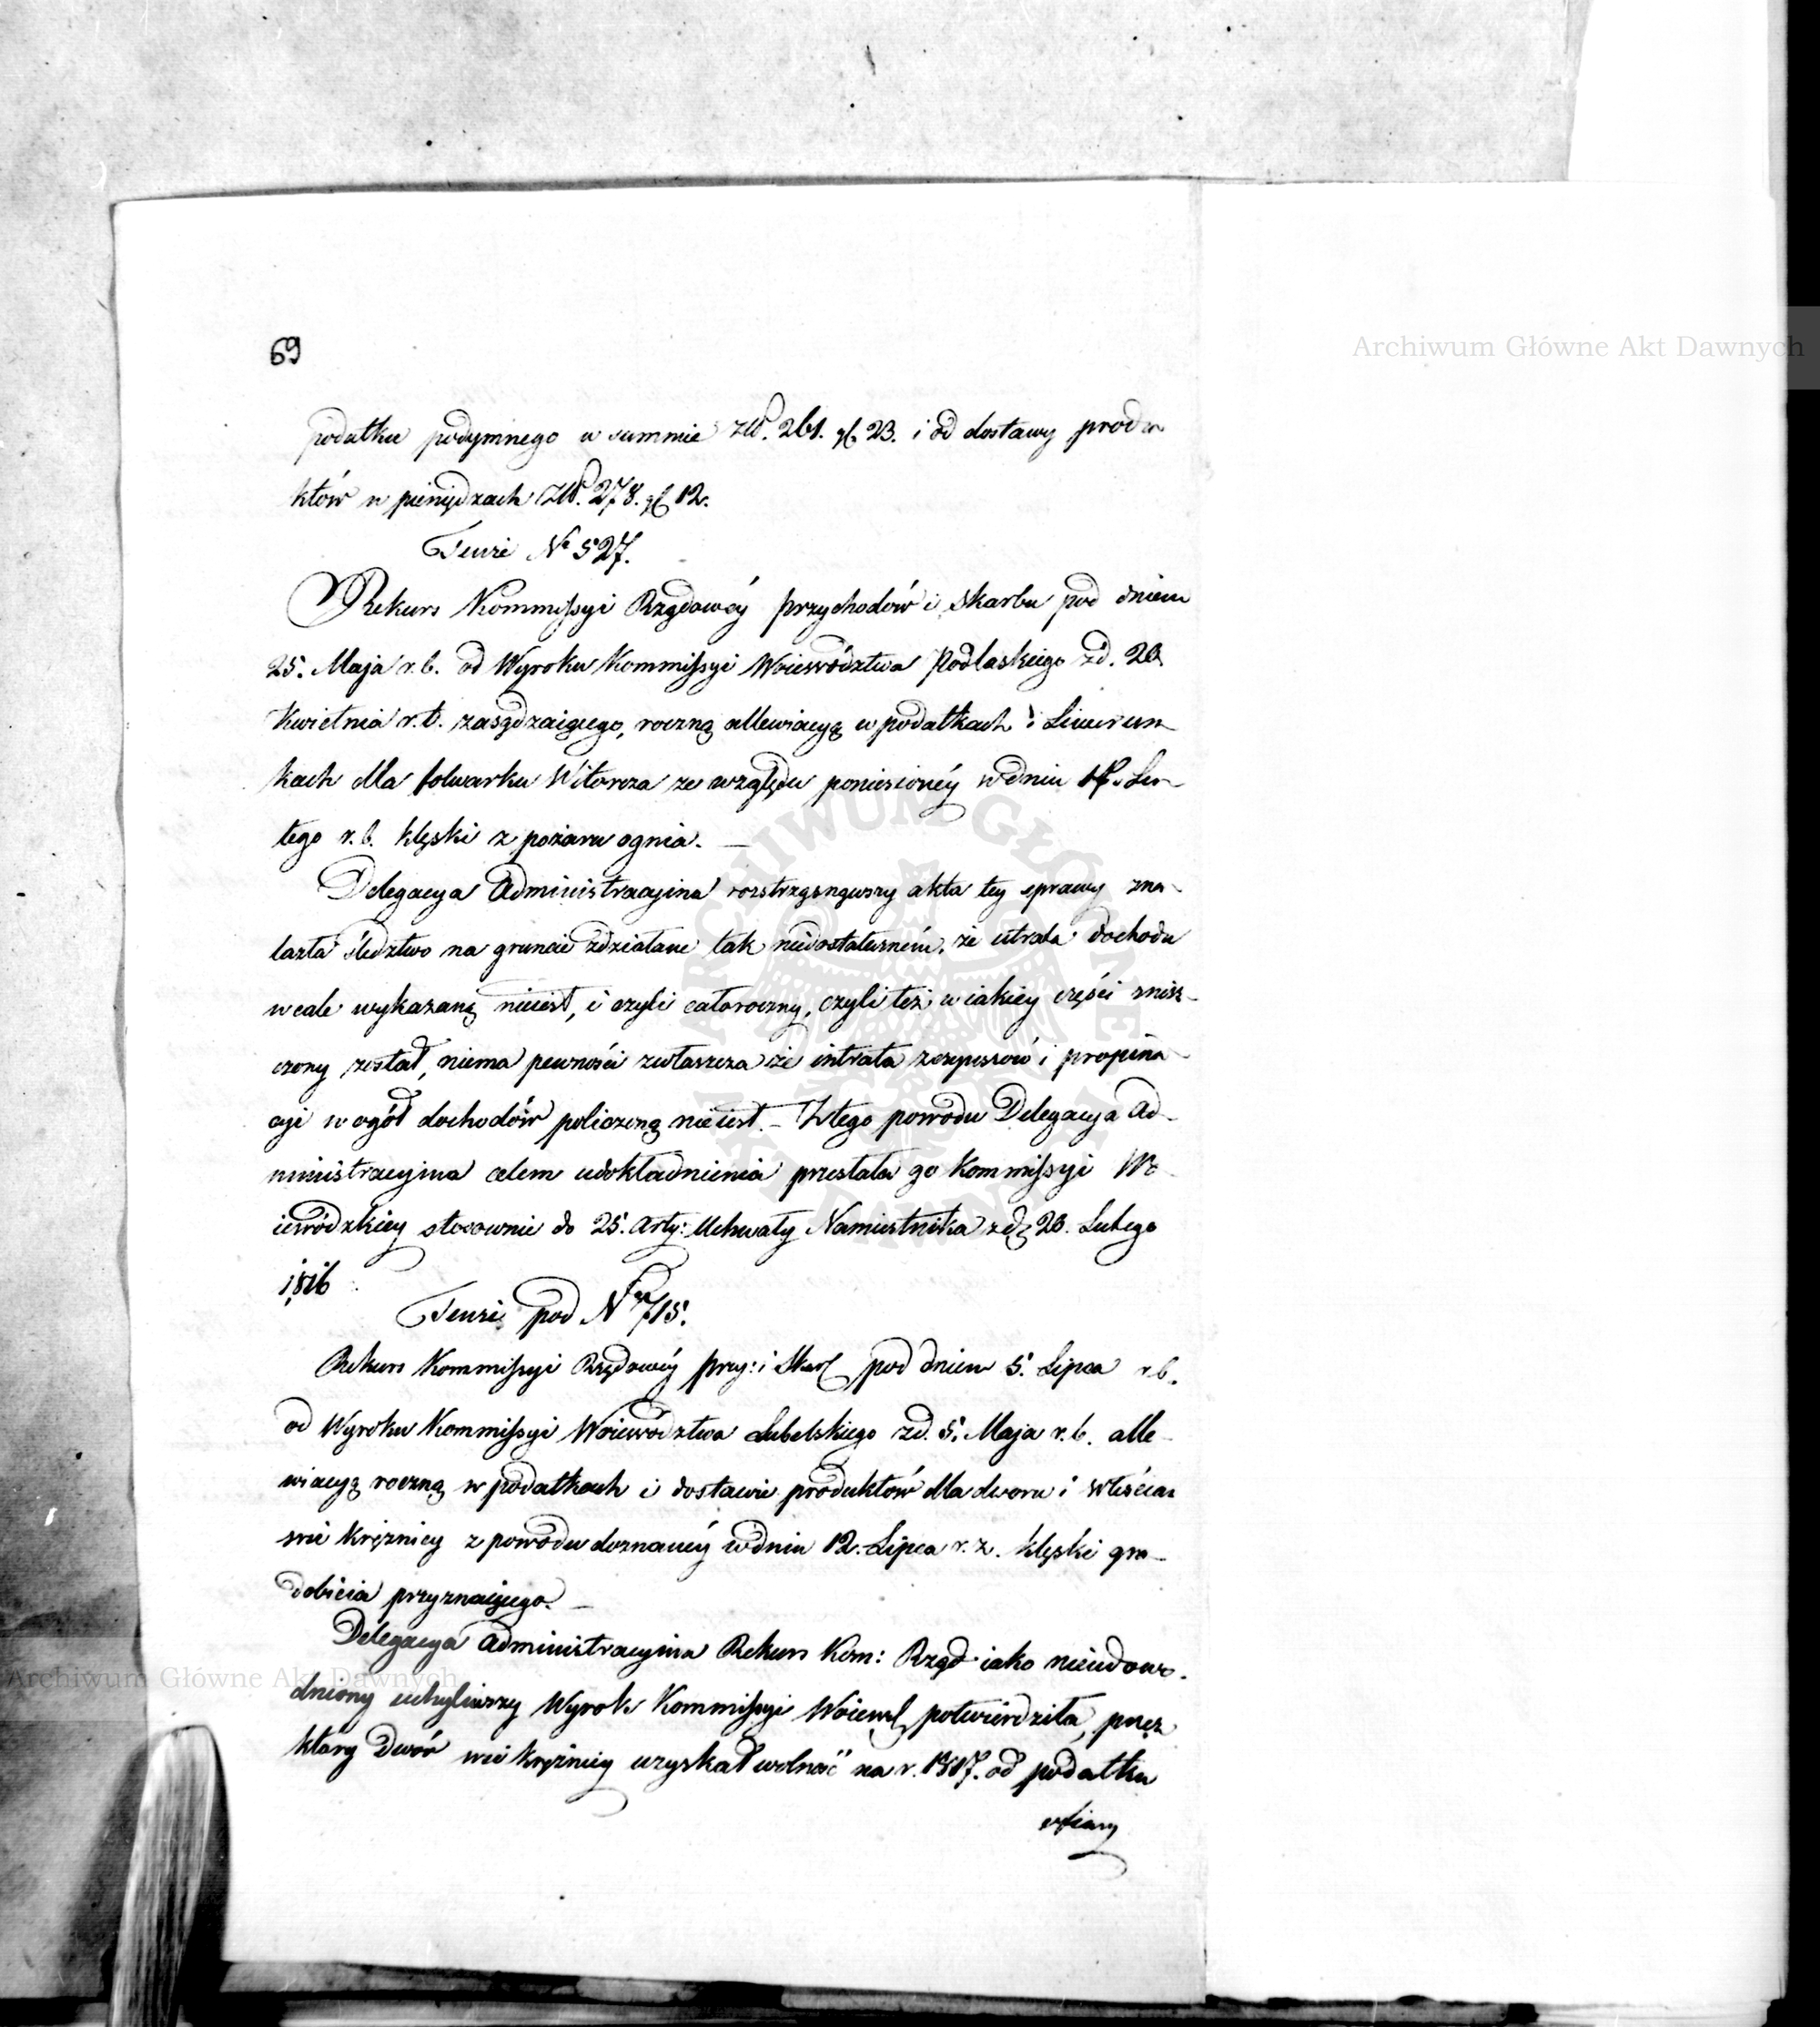 69
podatku podymnego w summie złł. 261. gr. 23. i od dostawy produ
któw w pieniędzach złł. 278. gr 12.
Teuże No 527.
Rekurs Kommissyi Rządowéy przychodów i skarbu pod dniem
25. Maja r. b. od Wyroku Kommissyi Woiewództwa Podlaskiego zd. 20
Kwietnia r. b. zasądzaiącego, roczną allewiacyą w podatkach i Liwerun
kach dla folwarku Witorza ze względu poniesionéy w dniu Lu-
tego r. b. klęski z pożaru ognia. —
Delegacya Administracyina rozstrząsnąwszy akta tey sprawy zna-
lazła śledztwo na gruncie zdziałane tak niedostateczném, że utrata dochodu
wcale wykazaną nieiest, i czyli całoroczny, czyli też w iakiey części znisz-
czony został, niema pewności zwłaszcza że intrata z czynszów i propina-
cyi w ogół dochodów policzoną nieiest. — Z tego powodu Delegacya Ad-
ministracyina celem udokładnienia przesłała go Kommissyi Wo-
iewódzkiey stosownie do 25. Arty: Uchwały Namiestnika z d. 20. Lutego
1816
Teuże pod Nrem 715.
Rekurs Kommissyi Rządowéy przy: i Skar pod dniem 5. Lipca r. b.
od Wyroku Kommissyi Woiewództwa Lubelskiego zd. 5. Maja r. b. alle-
wiacyą roczną w podatkach i dostawie produktów dla dworu i włościan
wsi Krężnicy z powodu doznanéy w dniu 12. Lipca r. z. klęski gra-
dobicia przyznaiącego. —
Delegacya Administracyina Rekurs Kom: Rząd iako nieudowo-
dniony uchyliwszy Wyrok Kommissyi Woiew potwierdziła, przez
który Dwór wsi Krężnicy uzyskał wolność na r. 1817. od podatku
ofiary
Archiwum Główne Akt Dawnych
Archiwum Główne Akt Dawnych
ARCHIWUM GŁÓWNE AKT DAWNYCH